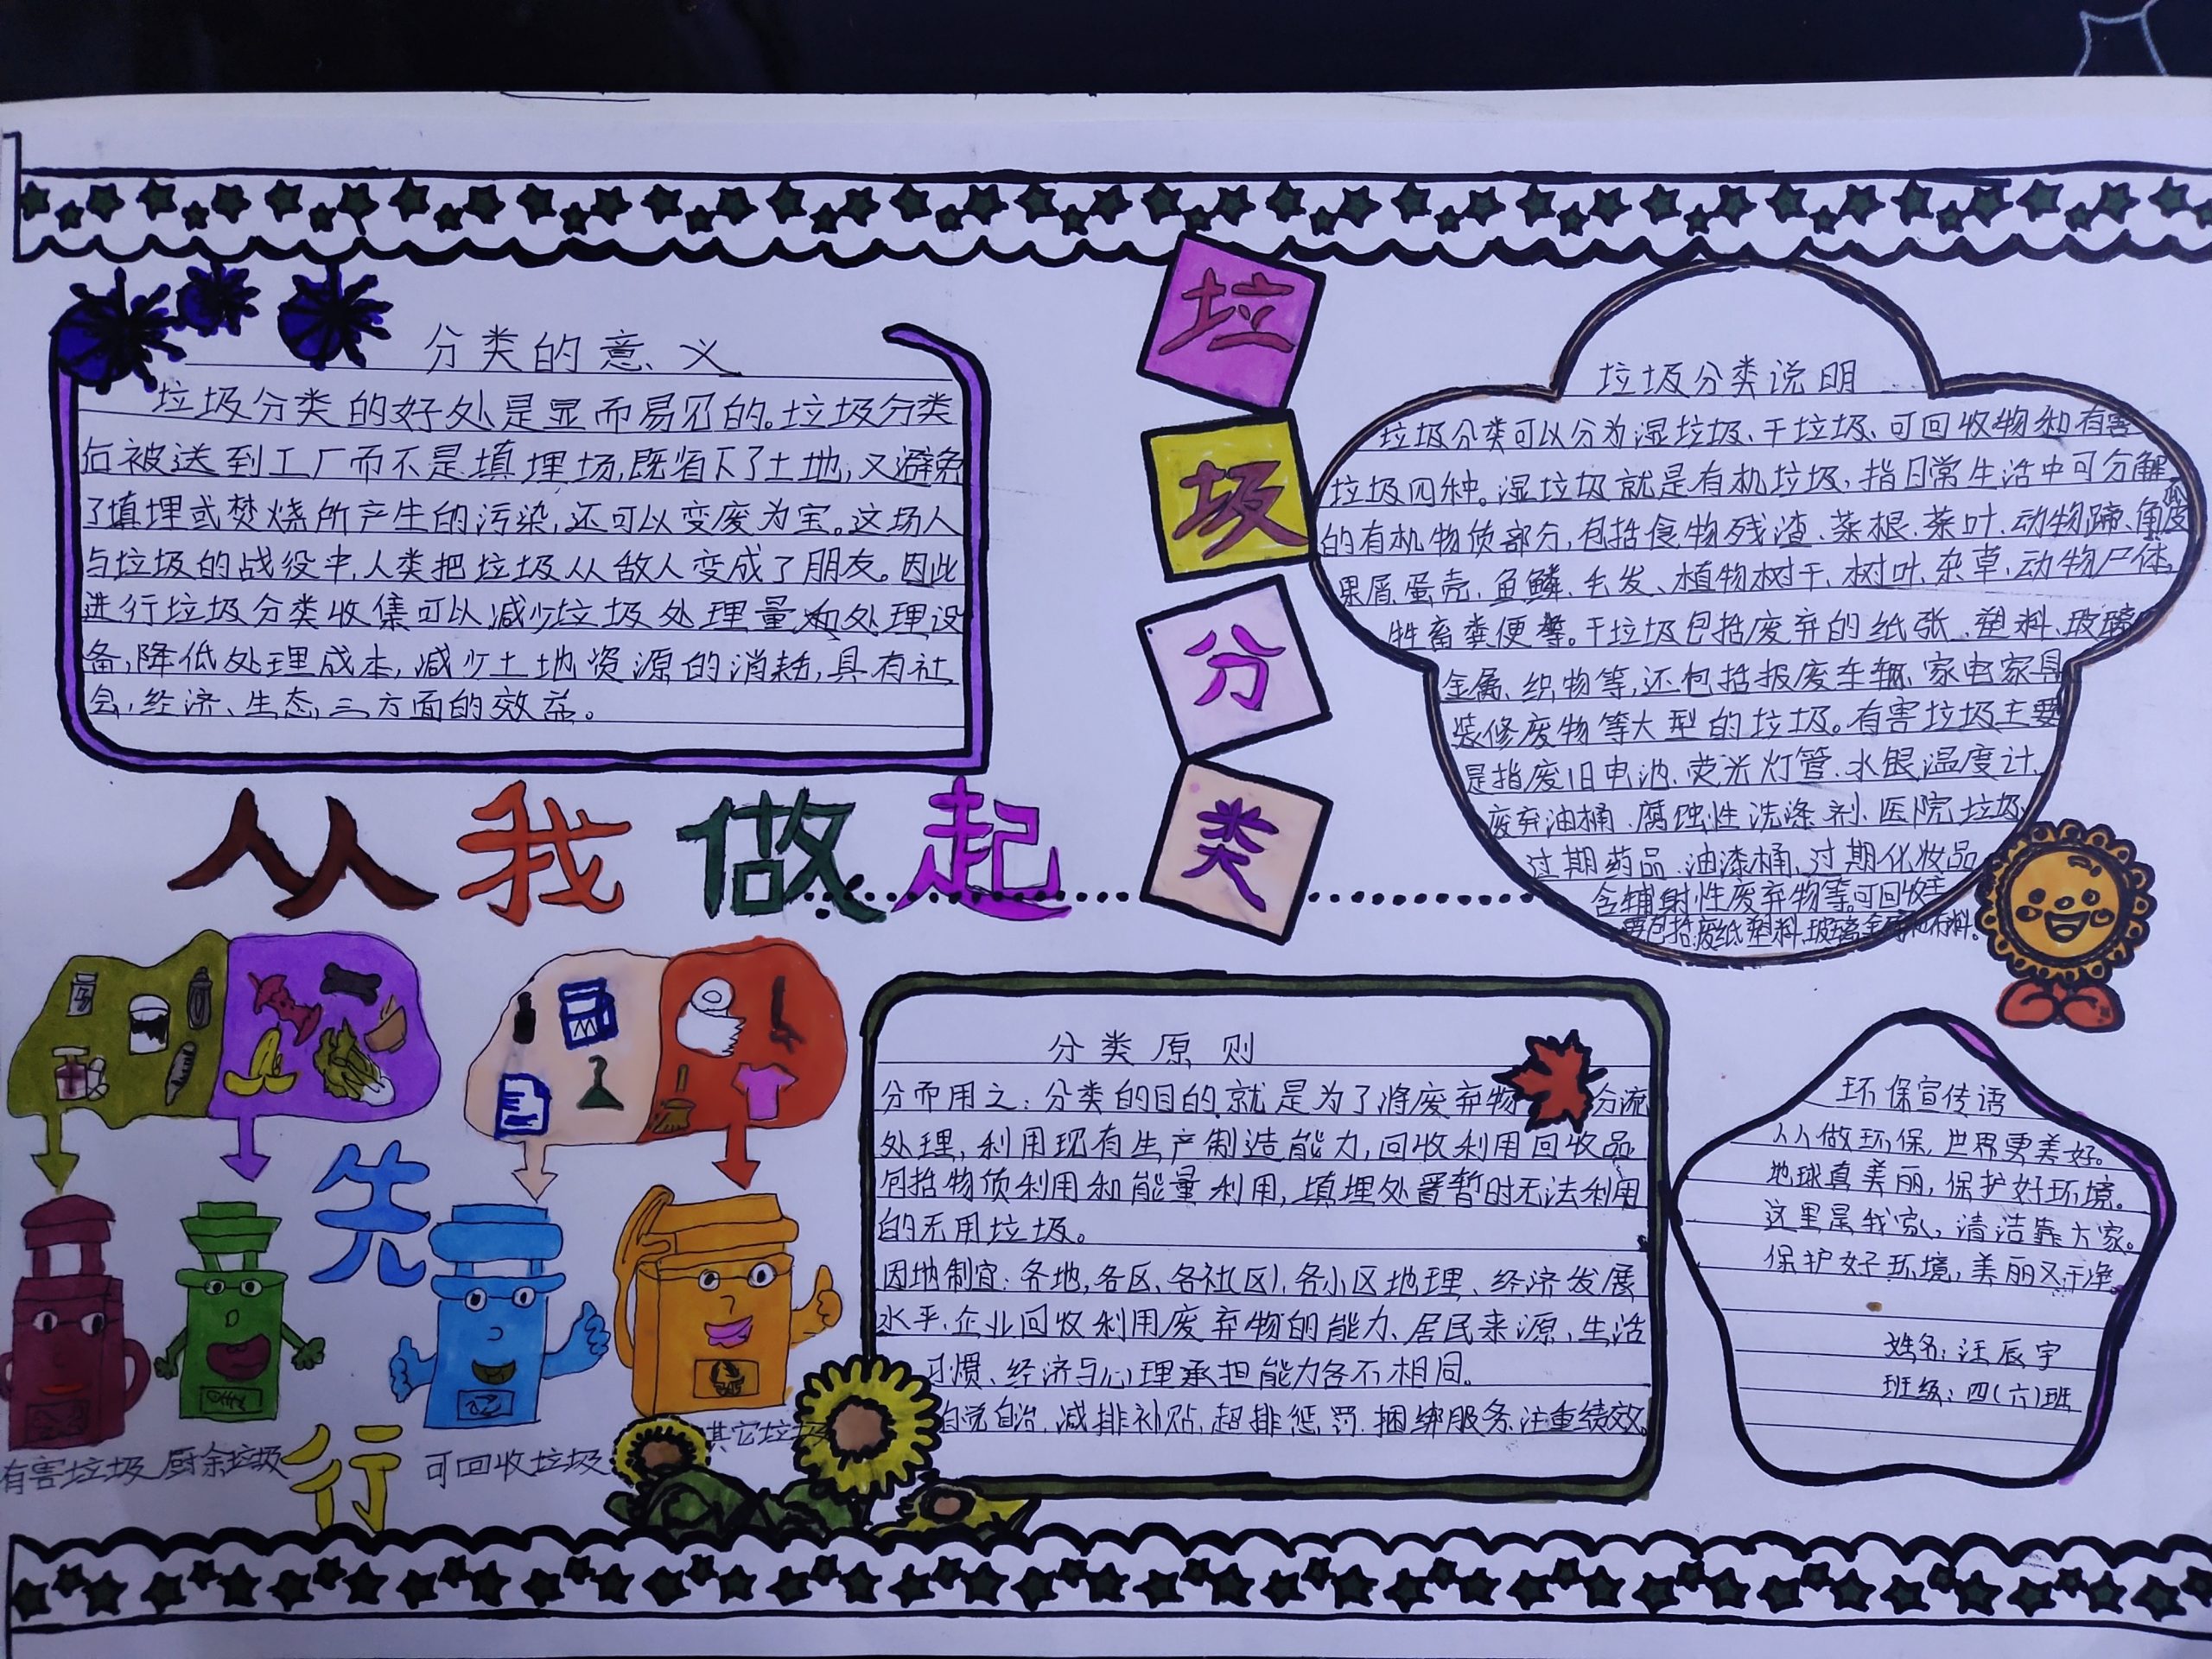 分类的意义
垃圾分类的好处是显而易见的。垃圾分类
后被送到工厂而不是填埋场,既省下了土地,又避免
了填埋或焚烧所产生的污染,还可以变废为宝。这场人
与垃圾的战役中,人类把垃圾从敌人变成了朋友。因此
进行垃圾分类收集可以减少垃圾处理量和处理设
备,降低处理成本,减少土地资源的消耗,具有社
会,经济、生态,三方面的效益。
垃
圾
分
类
垃圾分类说明
垃圾分类可以分为湿垃圾、干垃圾、可回收物和有害
垃圾四种。湿垃圾就是有机垃圾,指日常生活中可分解
的有机物质部分,包括食物残渣、菜根、菜叶、动物蹄、角、
果屑、蛋壳、鱼鳞、毛发、植物树干、树叶、杂草、动物尸体,
牲畜粪便等。干垃圾包括废弃的纸张、塑料、玻璃
金属、织物等,还包括报废车辆、家电家具
装修废物等大型的垃圾。有害垃圾主要
是指废旧电池、荧光灯管、水银温度计、
废弃油桶、腐蚀性洗涤剂、医院垃圾
过期药品、油漆桶、过期化妆品
含辐射性废弃物等。可回收主
要包括废纸、塑料、玻璃、金属和布料。
从我做起
先
行
有害垃圾
厨余垃圾
可回收垃圾
其它垃圾
分类原则
分而用之:分类的目的就是为了将废弃物分流
处理,利用现有生产制造能力,回收利用回收品,
包括物质利用和能量利用,填埋处置暂时无法利用
的无用垃圾。
因地制宜:各地,各区、各社区,各小区地理、经济发展
水平、企业回收利用废弃物的能力、居民来源,生活
习惯、经济与心理承担能力各不相同。
自觉自治,减排补贴,超排惩罚,捆绑服务,注重绩效。
环保宣传语
人人做环保,世界更美好。
地球真美丽,保护好环境。
这里是我家,清洁靠大家。
保护好环境,美丽又干净。
姓名:汪辰宇
班级:四(六)班